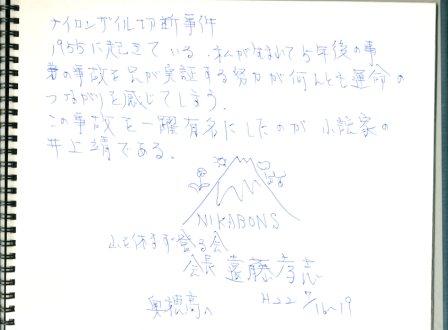 ナイロンザイル切断事件
1955に起きている。私が生まれて5年後の事
この事故を兄が実証する努力が何んとも運命の
つながりを感じてしまう。
この事故を一躍有名にしたのが小説家の
井上靖である。
NIKABONS
山を休まず登る会
会長 遠藤孝志
奥穂高へ H22 9/16~19